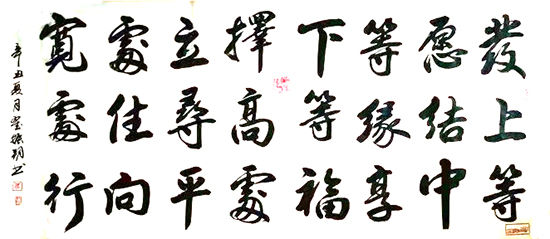 發上等
愿結中
等緣享
下等福
擇高處
立尋平
處住向
寬處行
辛丑夏月